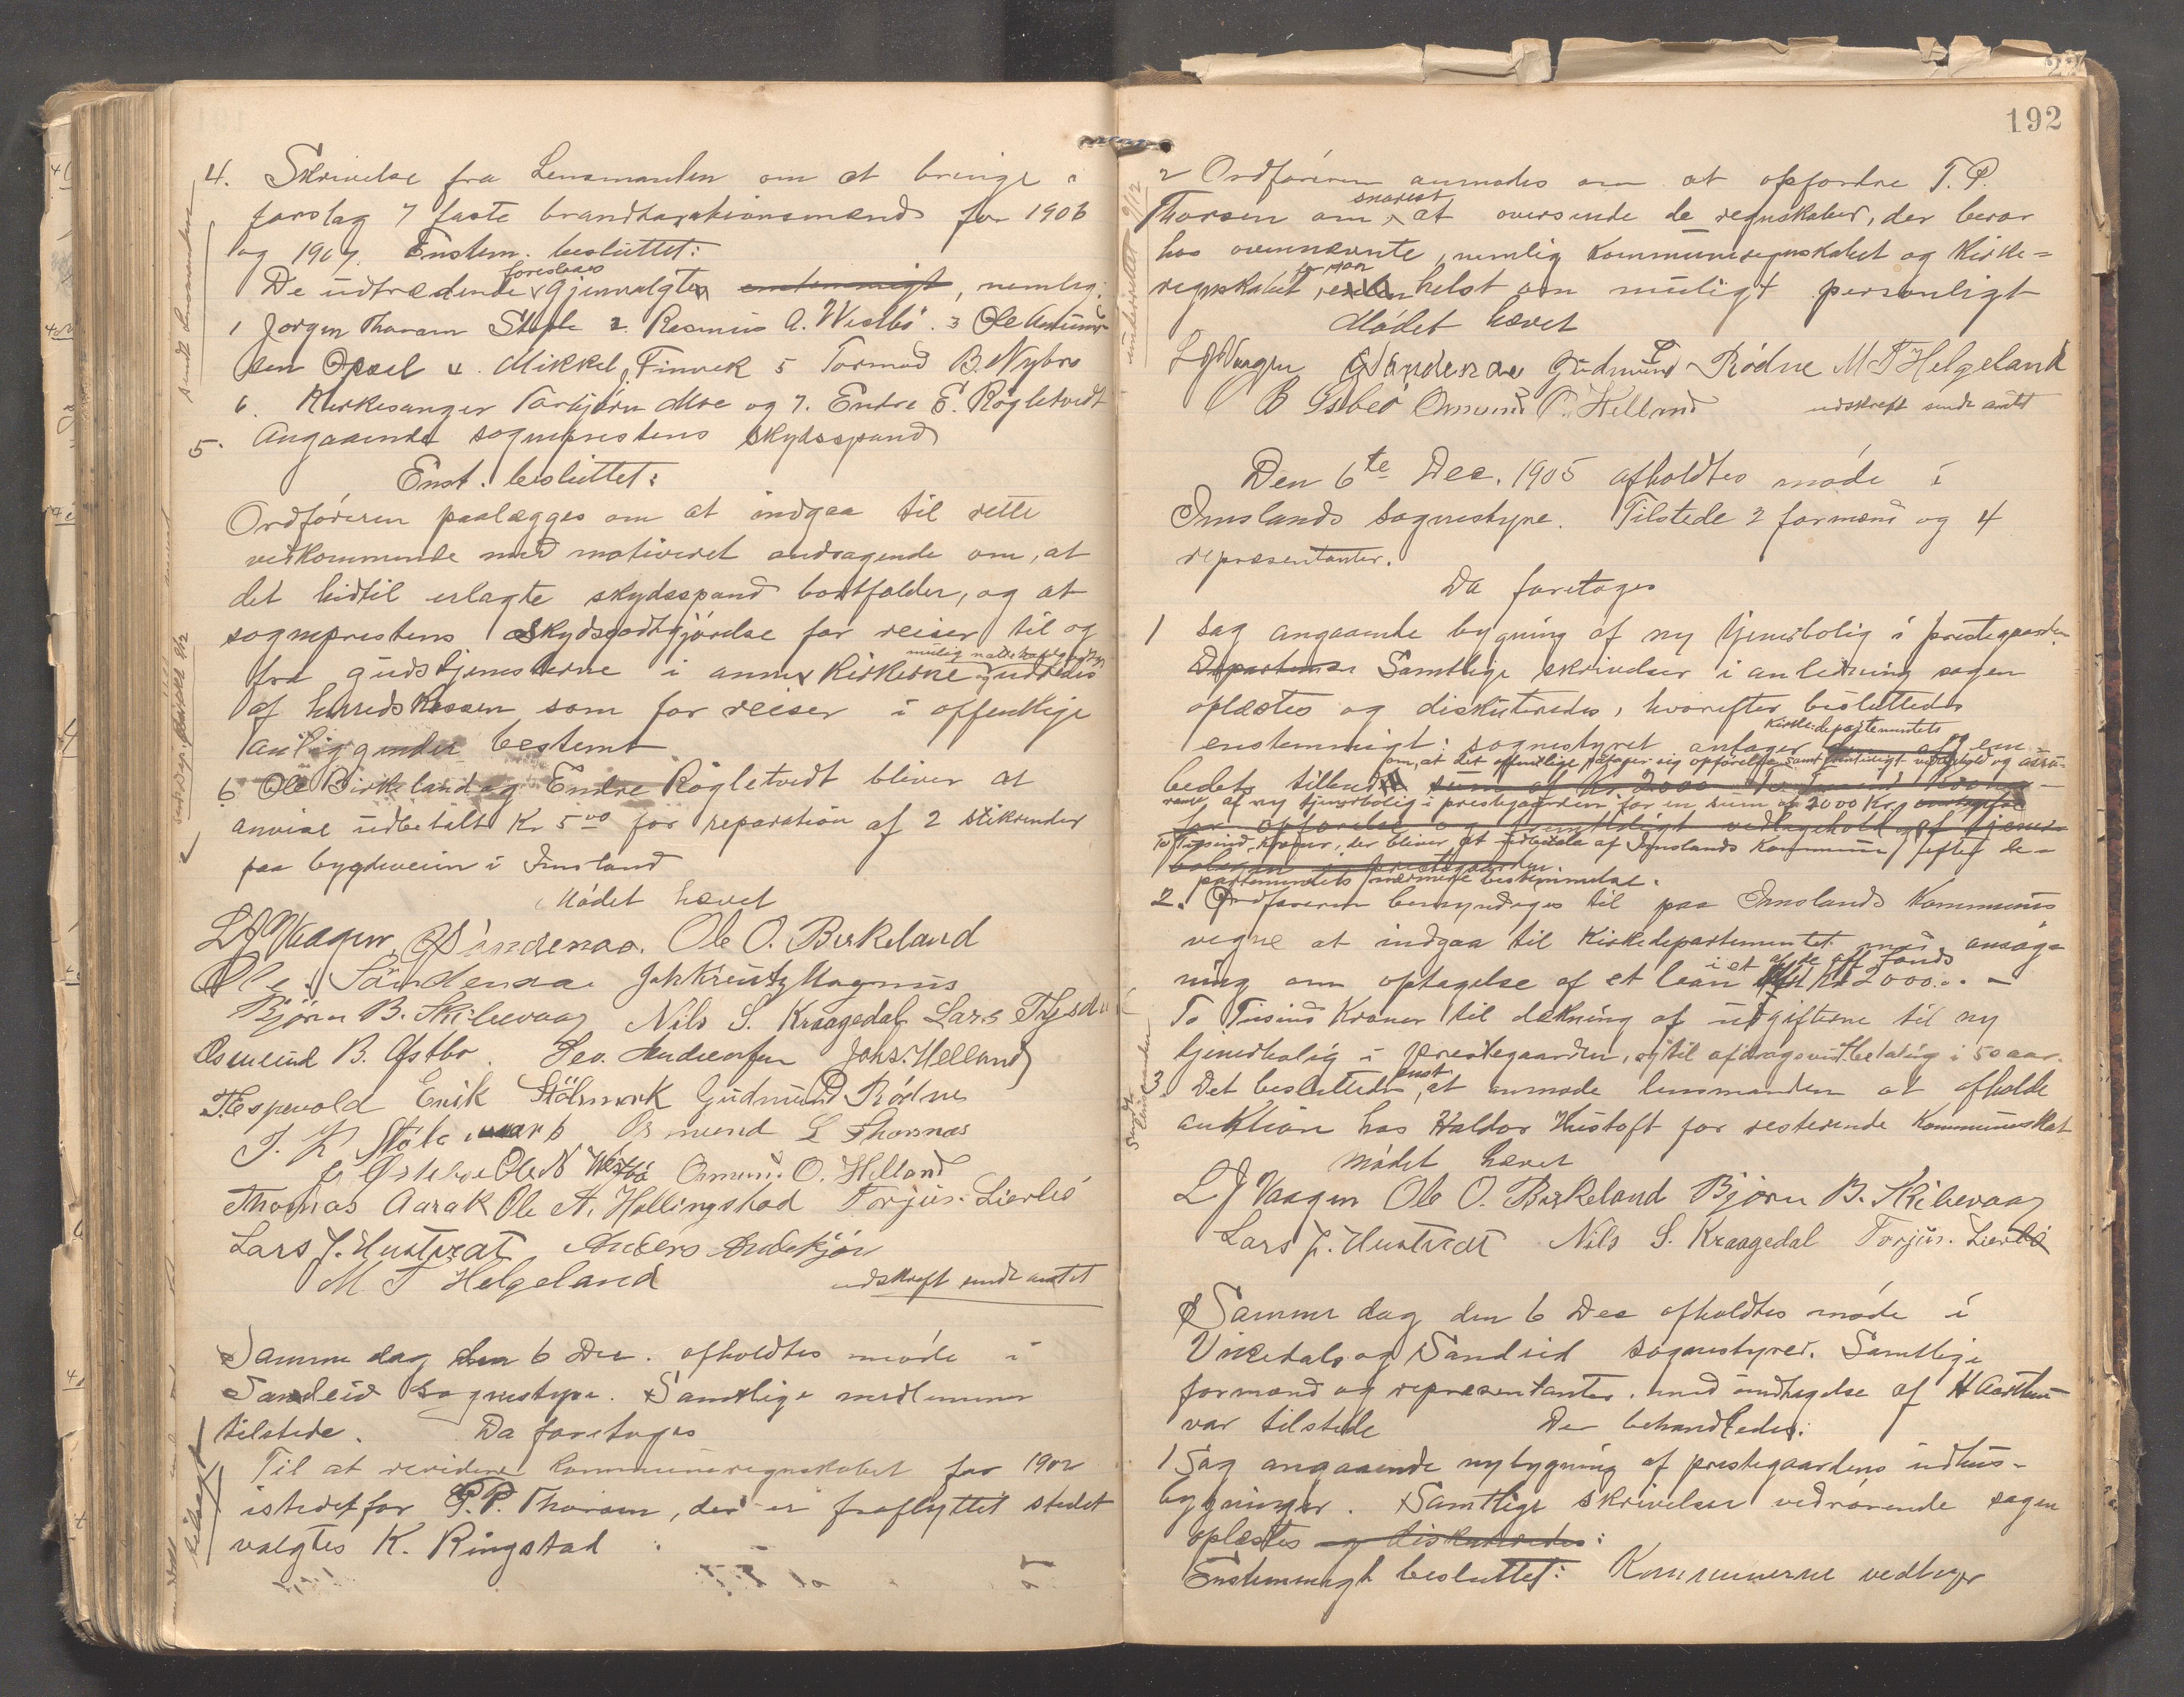 4. Skrivelse fra Lensmanden om at bringe i
forslag 7 faste brandtaxationsmænd for 1906
og 1907. Enstem. besluttet:
foreslaaes
De udtrædende gjenvalgtes enstemmigt, nemlig:
1 Jørgen Thorsen Stople 2. Rasmus A. Westbø. 3 Ole Asmund-
sen Opsal 4. Mikkel Finvik 5 Tormod B. Nybro
6. Kirkesanger Torbjørn Moe og 7. Endre E. Røgletvedt
5. Angaaende sogneprestens skydsspand
Enst. besluttet:
Ordføreren paalægges om at indgaa til rette
vedkommende med motiveret andragende om, at
det hidtil erlagte skydsspand bortfalder, og at
sogneprestens skydsgodtgjørelse for reiser til og
fra gudstjenesterne i annexkirkerne udredes
af herredskassen som for reiser i offentlige
anliggender bestemt
6 Ole Birkeland og Endre Røgletvedt bliver at
anvise udbetalt Kr 5.00 for reparation af 2 stikrender
paa bygdeveien i Imsland
Mødet hævet
L J Vaagen. G Sandenaa. Ole O. Birkeland
Ole. Sandenaa. Joh Kreutz Magnus
Bjørn B. Skibevaag Nils S. Kraagedal Lars T
Osmund B. Østbø. Sev. Andersen Johs. Helland
T. Espevold Enik Stølsmark Gudmund Rødne
I. K. Stølsmark Osmund L Thornas
G Østebø Ole N Westbø Osmund. O. Helland
Thomas Aarak Ole A. Hallingstad Torjus. Lierbø
Lars J. Hustvedt, Anders
M T Helgeland
udskrift sendt amtet
Samme dag den 6 Dec. afholdtes møde i
Sandeid sognestyre. Samtlige medlemmer
tilstede. Da foretoges
Til at revidere kommuneregnskabet for 1902
istedetfor T. P. Thorsen, der er fraflyttet stedet
valgtes K. Ringstad
192
2 Ordføreren anmodes om at opfordre T. P.
snarest
Thorsen om at oversende de regnskaber, der beror
hos ovennævnte, nemlig Kommuneregnskabet og Kirke-
regnskabet, helst om muligt personligt
Mødet hævet
L J Vaagen G Sandenaa Gudmund Rødne M T Helgeland
B Østbø Osmund O. Helland udskrift sendt amtet
underrettet 9/12
Den 6te Dec. 1905 afholdtes møde i
Imslands Sognestyre. Tilstede 2 formænd og 4
repræsentanter.
Da foretoges
1 Sag angaaende bygning af ny tjenerbolig i prestegaarden
Departemen Samtlige skrivelser i anledning sagen
oplæstes og diskuteredes, hvorefter besluttedes
Kirkedepartementets
enstemmigt: sognestyret antager em-
om, at det offentlige paatager sig opførelse samt fremtidigt vedligehold og assu-
bedets tilbud
rance af ny tjenerbolig i prestegaarden for en sum af 2000 Kr.,
for opførelse og fremtidigt vedligehold af tjener-
To Tusind Kroner, der bliver at udbetale af Imslands Kommune efter de-
boligen i prestegaarden.
partementets nærmere bestemmelse.
2. Ordføreren bemyndiges til paa Imslands Kommunes
vegne at indgaa til Kirkedepartementet med ansøg-
i et af de off. fonds
ning om optagelse af et laan Kr. 2000.. –
To Tusind Kroner til dækning af udgifterne til ny
tjenerbolig i prestegaarden, og til afdragsvis tilbetaling i 50 aar.
enst.
3. Det besluttedes, at anmode lensmanden at afholde
auktion hos Haldor Hustoft for resterende Kommuneskat
Mødet hævet
L J Vaagen Ole O. Birkeland Bjørn B. Skibevaag
Lars J. Hustvedt Nils S. Kraagedal Torjus. Lierbø
Samme dag den 6 Dec afholdtes møde i
Vikedals og Sandeid sognestyrer. Samtlige
formænd og repræsentanter. med undtagelse af H Aarthun
var tilstede Der behandledes:
1 Sag angaaende nybygning af prestegaardens udhus-
bygninger. Samtlige skrivelser vedrørende sagen
oplæstes og diskuteredes:
Enstemmigt besluttet: Kommunerne vedtager